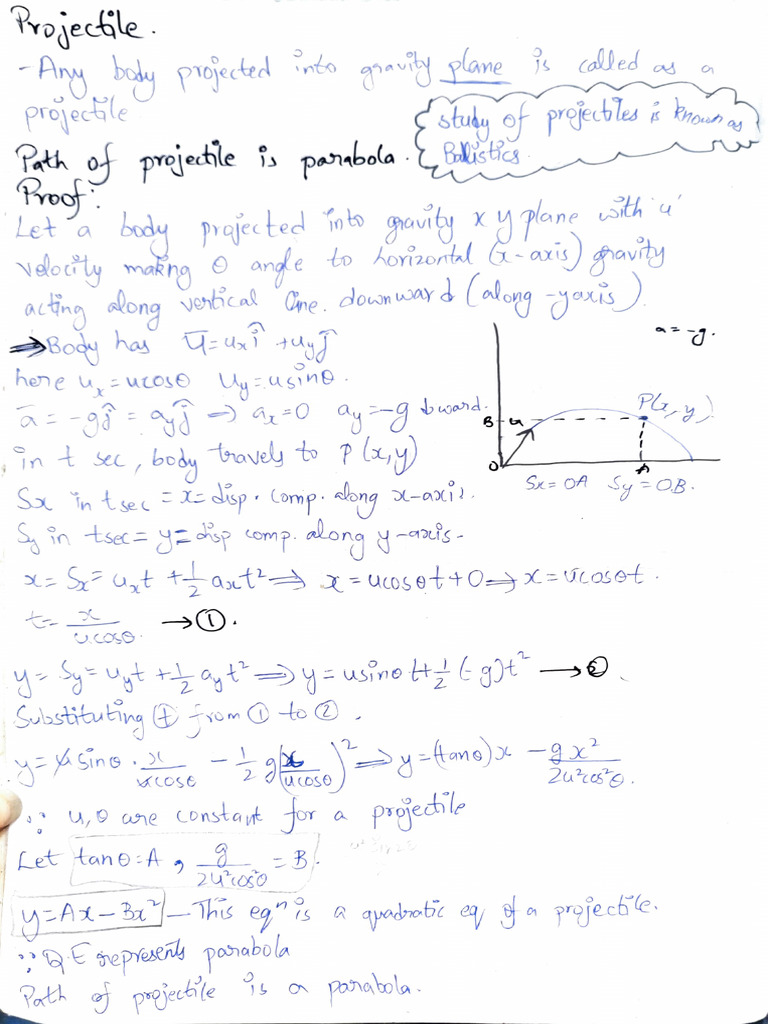 Projectile.
-Any body projected into gravity plane is called as a
projectile
study of projectiles is known as
Ballistics.
Path of projectile is parabola.
Proof:
Let a body projected into gravity x y plane with 'u'
velocity making θ angle to horizontal (x-axis) gravity
acting along vertical line. downward (along -yaxis)
a = -g.
⇒Body has u̅ = uₓî + u_yĵ
here uₓ = ucosθ u_y = usinθ.
a̅ = -gĵ = a_yĵ ⇒ aₓ=0 a_y=-g
P(x, y)
B u
O A
Sx = OA Sy = OB.
in t sec, body travels to P(x,y)
Sx in tsec = x = disp. comp. along x-axis.
Sy in tsec = y = disp comp. along y-axis-
x = Sx = uₓt + ½ aₓt² ⇒ x = ucosθt + 0 ⇒ x = ucosθt.
t = x/ucosθ. → ①.
y = Sy = u_yt + ½ a_yt² ⇒ y = usinθ t + ½ (-g)t² → ②.
Substituting t from ① to ②.
y = u sinθ · x/ucosθ - ½ g(x/ucosθ)² ⇒ y = (tanθ)x - gx²/2u²cos²θ.
∵ u, θ are constant for a projectile
Let tanθ = A , g/2u²cos²θ = B.
y = Ax - Bx² - This eqⁿ is a quadratic eq of a projectile.
∵ Q.E represents parabola
Path of projectile is a parabola.